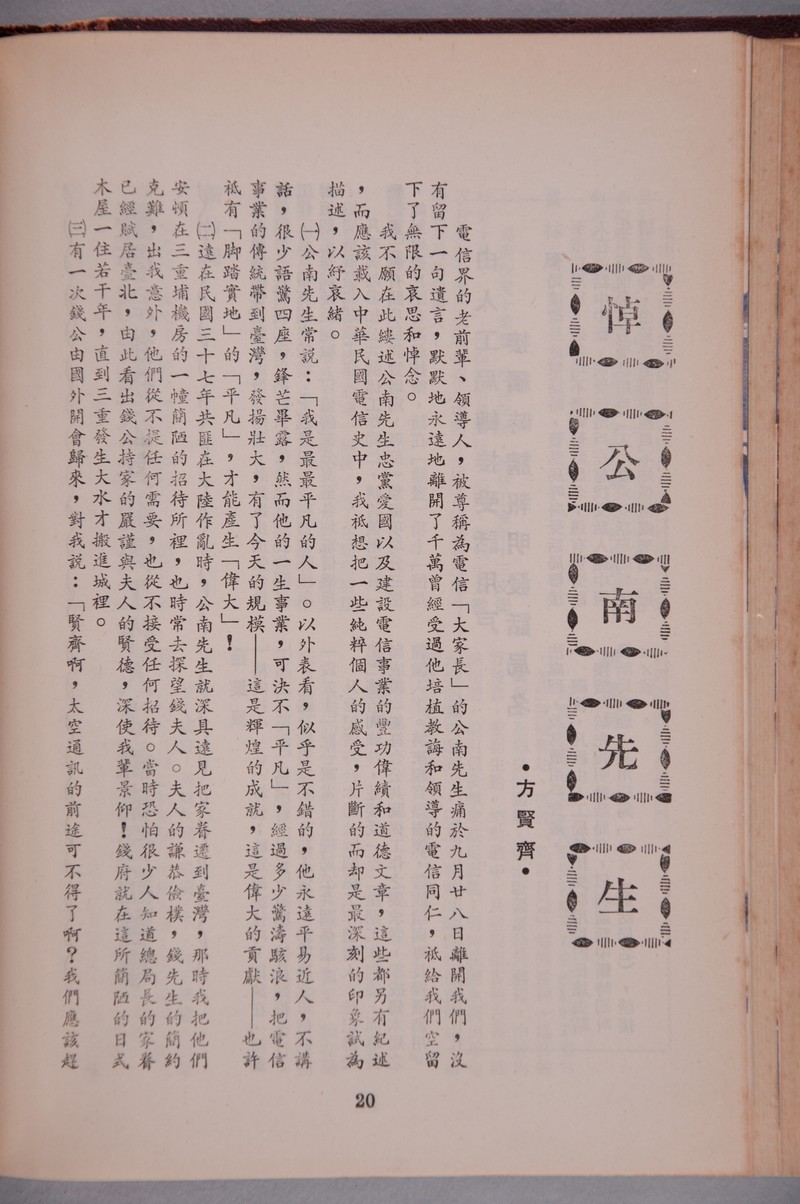 悼公南先生
•方賢齊•
電信界的老前輩、領導人，被尊稱為電信「大家長」的公南先生痛於九月廿八日離開我們，沒
有留下一句遺言，默默地永遠地離開了千萬曾經受過他培植教誨和領導的電信同仁，祗給我們空留
下了無限的哀思和悼念。
我不願在此縷述公南先生忠黨愛國以及建設電信事業的豐功偉績和道德文章，這些都另有紀述
，而應該載入中華民國電信史中，我祗想把一些純粹個人的感受，片斷的而却是最深刻的印象試為
描述，以紓哀緒。
㈠公南先生常說：「我是最最平凡的人」。以外表看，似乎是不錯的，他永遠平易近人，不講
話，很少語驚四座，鋒芒畢露，然而他的一生事業，可決不「平凡」，經過多少驚濤駭浪，把電信
事業的傳統帶到臺灣，發揚壯大，有了今天的規模——這是輝煌的成就，這是偉大的貢獻——也許
祗有「脚踏實地」的「平凡」，才能產生「偉大」！
㈡遠在民國三十七年共匪在大陸作亂時，公南先生就深具遠見把家眷遷到臺灣，那時我把他們
安頓在三重埔機房的一幢簡陋的招待所裡，也時常去探望錢夫人。夫人的謙恭儉樸，錢先生的簡約
克難，出我意外，他們從不提任何需要，也從不接受任何招待。當時恐怕很少人知道總局長的家眷
已經賦居臺北，由此看出錢公持家的嚴謹與夫人的賢德，深使我輩景仰！錢府就在這所簡陋的日式
木屋一住若干年，直到三重發生大水才搬進城裡。
㈢有一次錢公由國外開會歸來，對我說：「賢齊啊，太空通訊的前途可不得了啊？我們應該趕
20